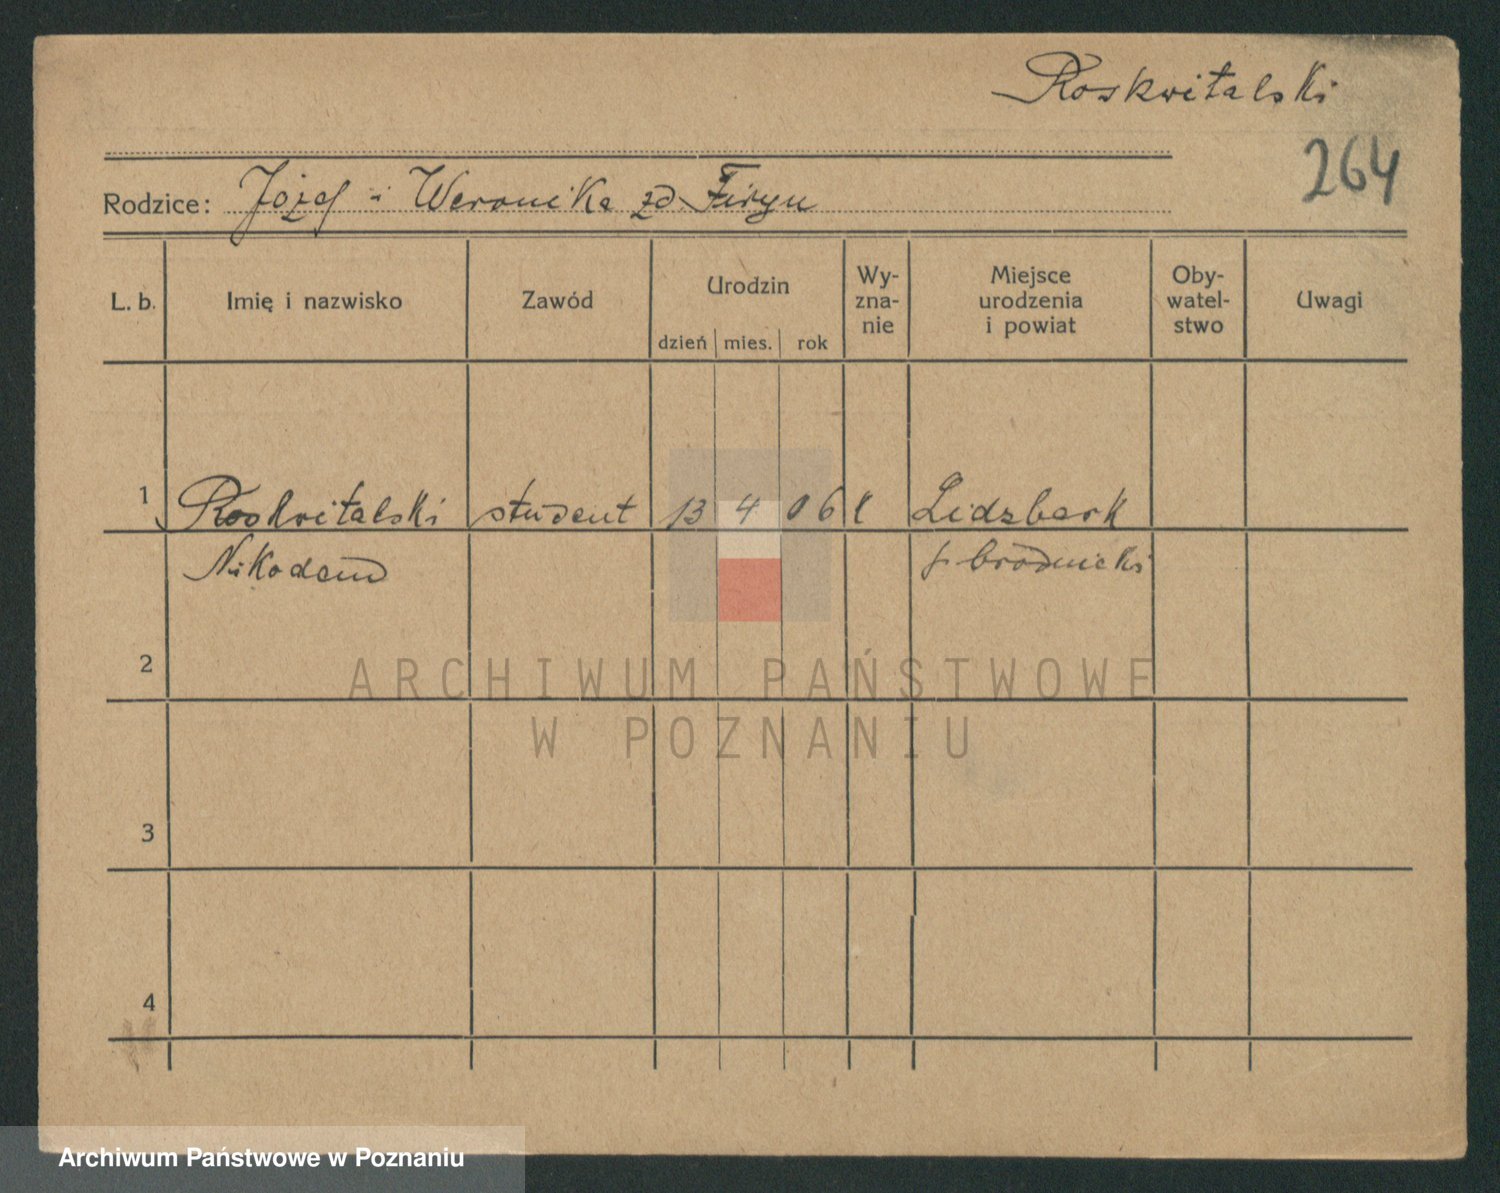 Roskwitalski
264
Rodzice: Józef i Weronika zd
L. b.
Imię i nazwisko
Zawód
Urodzin
dzień mies. rok
Wy-
zna-
nie
Miejsce
urodzenia
i powiat
Oby-
watel-
stwo
Uwagi
1 Roskwitalski student 13 4 06 k Lidzbark
Nikodem p. brodnicki
2
3
4
ARCHIWUM PAŃSTWOWE
W POZNANIU
Archiwum Państwowe w Poznaniu